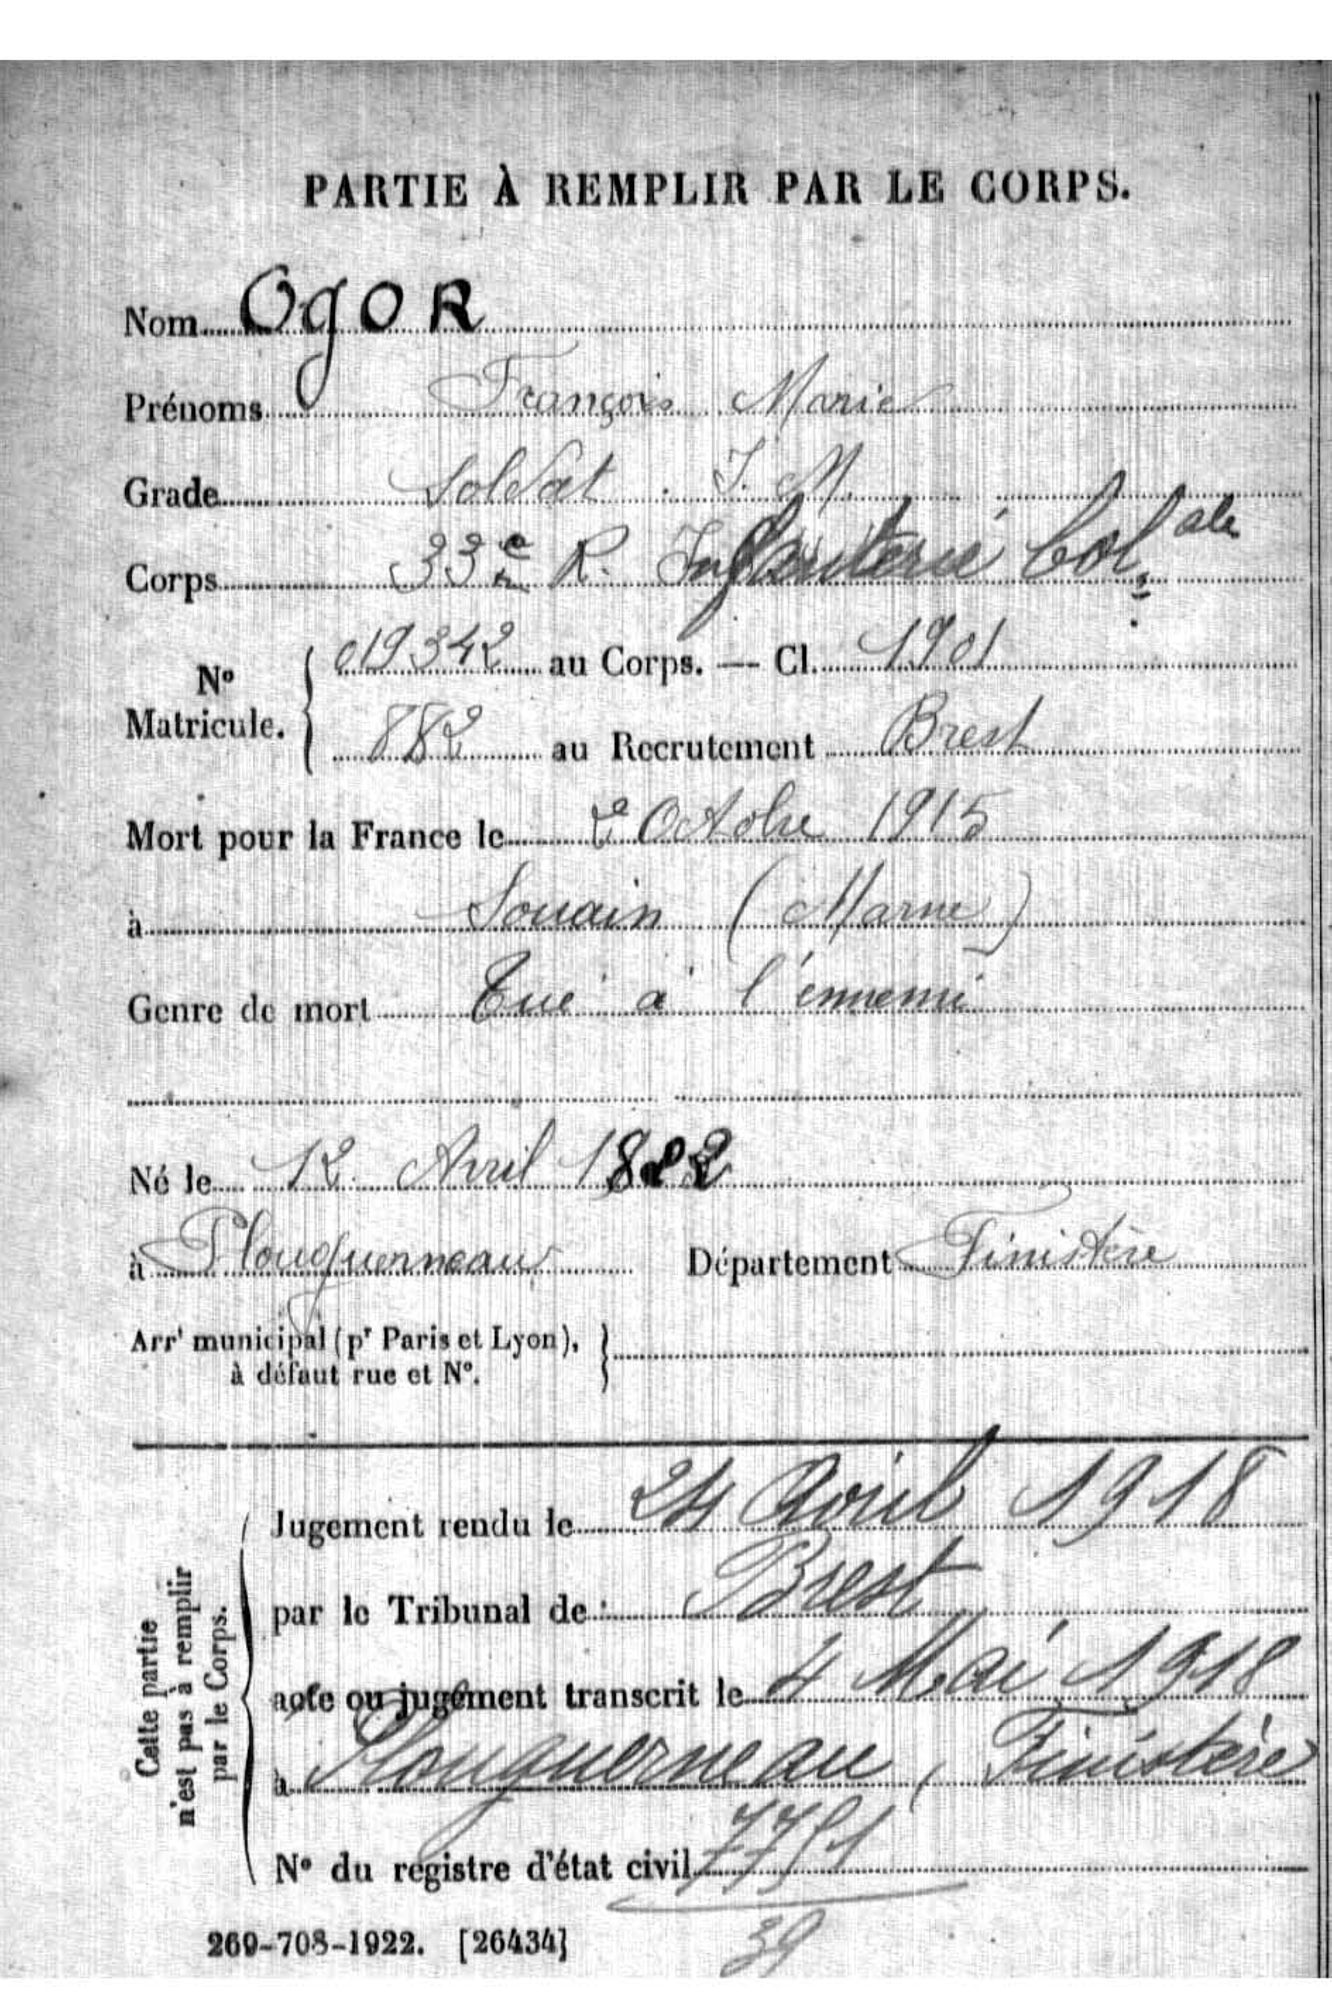 PARTIE À REMPLIR PAR LE CORPS.
Nom OgoR
Prénoms François Marie
Grade Soldat
Corps 33e R. Infanterie Col ale
No Matricule. 019342 au Corps. — Cl. 1901
882 au Recrutement Brest
Mort pour la France le 2 Octobre 1915
à Souain (Marne)
Genre de mort Tué à l'ennemi
Né le 12 Avril 1882
à Plouguerneau Département Finistère
Arrt municipal (pr Paris et Lyon),
à défaut rue et N°.
Cette partie
n'est pas à remplir
par le Corps.
Jugement rendu le 24 Avril 1918
par le Tribunal de : Brest
acte ou jugement transcrit le 4 Mai 1918
à Plouguerneau, Finistère
N° du registre d'état civil
39
269-708-1922. [26434]